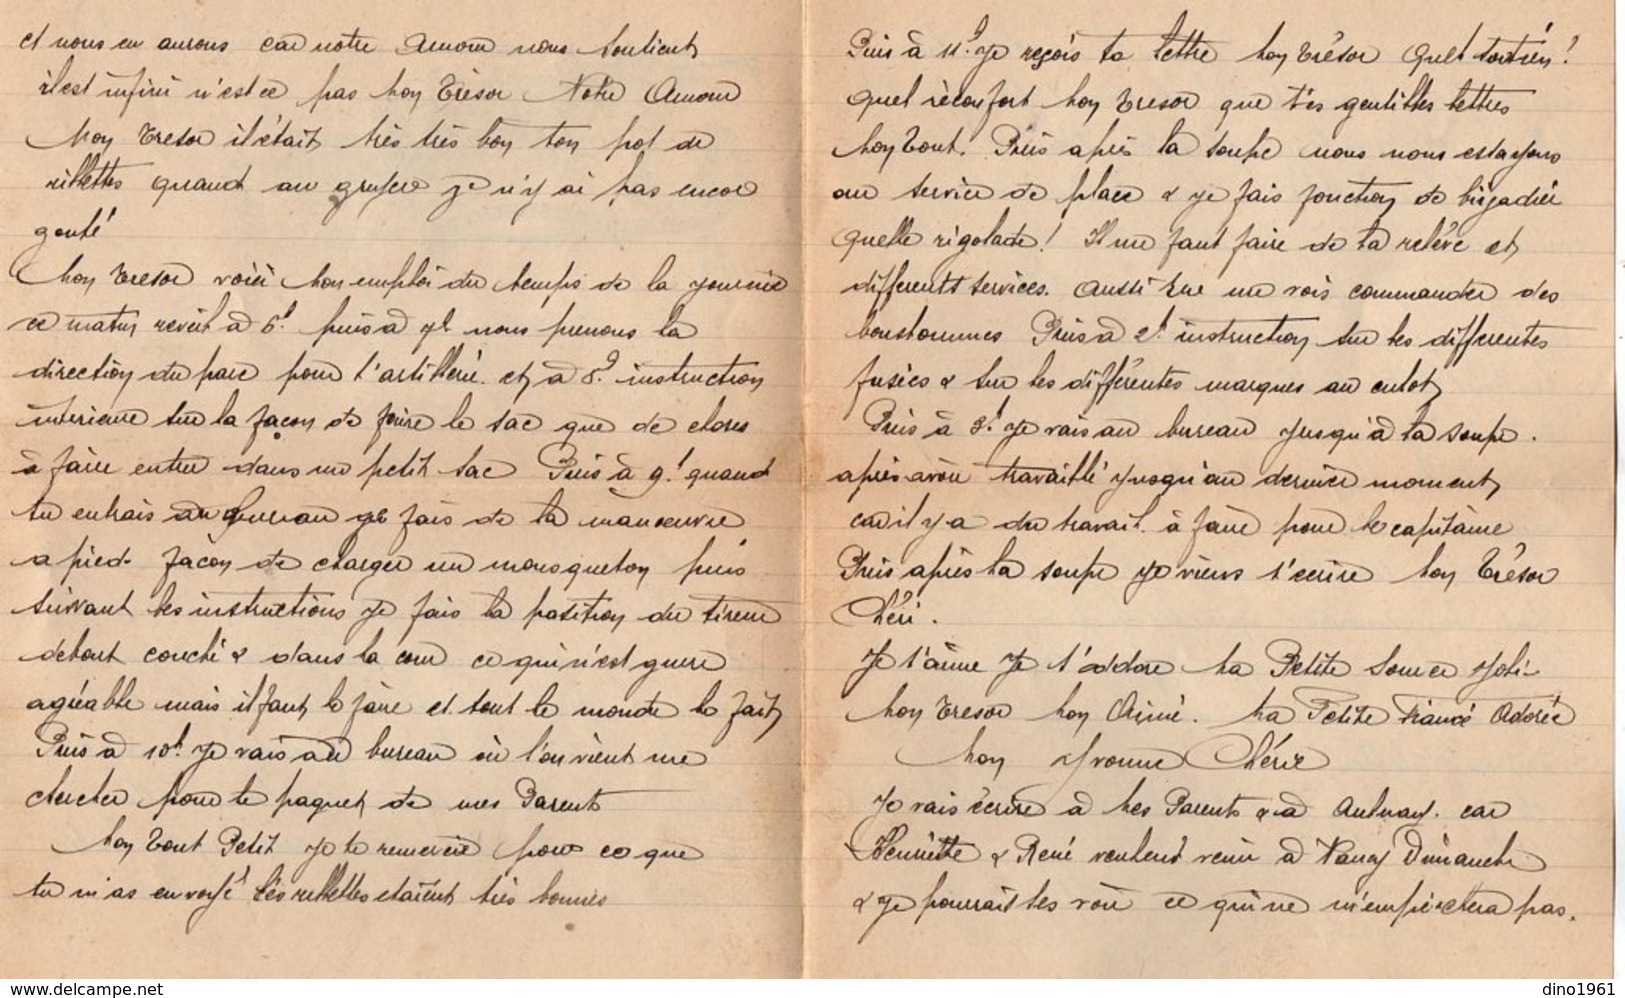 et nous en aurons car notre Amour nous soutient
il est infini n'est ce pas Mon Trésor Notre Amour
Mon Tresor il était très très bon ton pot de
rillettes quand au gruyere je n'y ai pas encore
gouté
Mon Tresor voici mon emploi du temps de la journée
ce matin reveil à 6h puis à 7h nous prenons la
direction du parc pour l'artillerie. et à 8h instruction
interieure sur la façon de faire le sac que de choses
à faire entrer dans un petit sac Puis à 9h quand
tu entrais au bureau je fais de la manoeuvre
a pied. façon de charger un mousqueton puis
suivant les instructions je fais la position du tireur
debout couché & dans la cour ce qui n'est guere
agréable mais il faut le faire et tout le monde le fait
Puis à 10h je vais au bureau où l'on vient me
chercher pour le paquet de mes Parents
Mon Tout Petit je te remercie pour ce que
tu m'as envoyé les rillettes etaient très bonnes
Puis à 11h je reçois ta lettre Mon Trésor Quel soutien!
Quel réconfort Mon Tresor que tes gentilles lettres
Mon Tout. Puis après la soupe nous nous essayons
au service de place & je fais fonction de brigadier
Quelle rigolade! Il me faut faire de la relève et
differents services. Aussi tu me vois commander des
bonshommes Puis à 2h instruction sur les differentes
fusées & sur les différentes marques au culot
Puis à 3h je vais au bureau jusqu'à la soupe.
après avoir travaillé jusqu'au dernier moment
car il y a du travail à faire pour le capitaine
Puis après la soupe je viens t'ecrire Mon Trésor
Chéri.
Je t'aime Je t'addore Ma Petite Source Joli-
Mon Tresor Mon Aimé. Ma Petite Fiancé Adorée
Mon Yvonne Chérie
Je vais écrire à tes Parents & à Aulnay. car
Henriette & René veulent venir à Nancy Dimanche
& je pourrais les voir ce qui ne m'empêchera pas.
dino1961